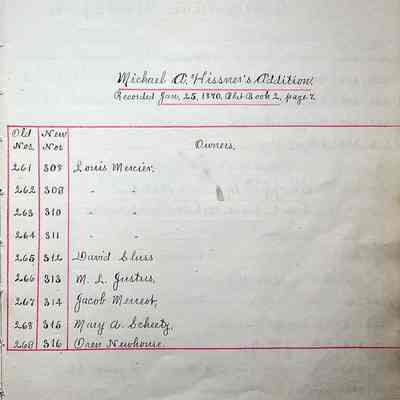 Michael A. Hissner's Addition.
Recorded Jan. 25, 1870. Plat Book 2, page 7.
Old Nos. New Nos. Owners.
261 308 Louis Mercier.
262 309 " "
263 310 " "
264 311 " "
265 312 David Sluss
266 313 M. L. Justus,
267 314 Jacob Merest,
268 315 Mary A. Scheetz,
269 316 Oren Newhouse.